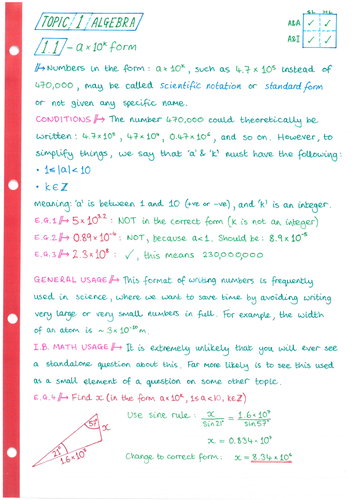 TOPIC 1 ALGEBRA
SL HL
A&A ✓ ✓
A&I ✓ ✓
1.1 - a×10ᵏ form
Numbers in the form: a×10ᵏ, such as 4.7×10⁵ instead of
470,000, may be called scientific notation or standard form
or not given any specific name.
CONDITIONS The number 470,000 could theoretically be
written: 4.7×10⁵, 47×10⁴, 0.47×10⁶, and so on. However, to
simplify things, we say that 'a' & 'k' must have the following:
• 1≤|a|<10
• k∈ℤ
meaning: 'a' is between 1 and 10 (+ve or -ve), and 'k' is an integer.
E.G.1 5×10³·² : NOT in the correct form (k is not an integer)
E.G.2 0.89×10⁻⁴ : NOT, because a<1. Should be: 8.9×10⁻⁵
E.G.3 2.3×10⁸ : ✓, this means 230,000,000
GENERAL USAGE This format of writing numbers is frequently
used in science, where we want to save time by avoiding writing
very large or very small numbers in full. For example, the width
of an atom is ~ 3×10⁻¹⁰m.
I.B. MATH USAGE It is extremely unlikely that you will ever see
a standalone question about this. Far more likely is to see this used
as a small element of a question on some other topic.
E.G.4 Find x (in the form a×10ᵏ, 1≤a<10, k∈ℤ)
Use sine rule: x/sin21° = 1.6×10⁷/sin57°
x = 0.834×10⁷
Change to correct form: x = 8.34×10⁶
57°
x
21°
1.6×10⁷